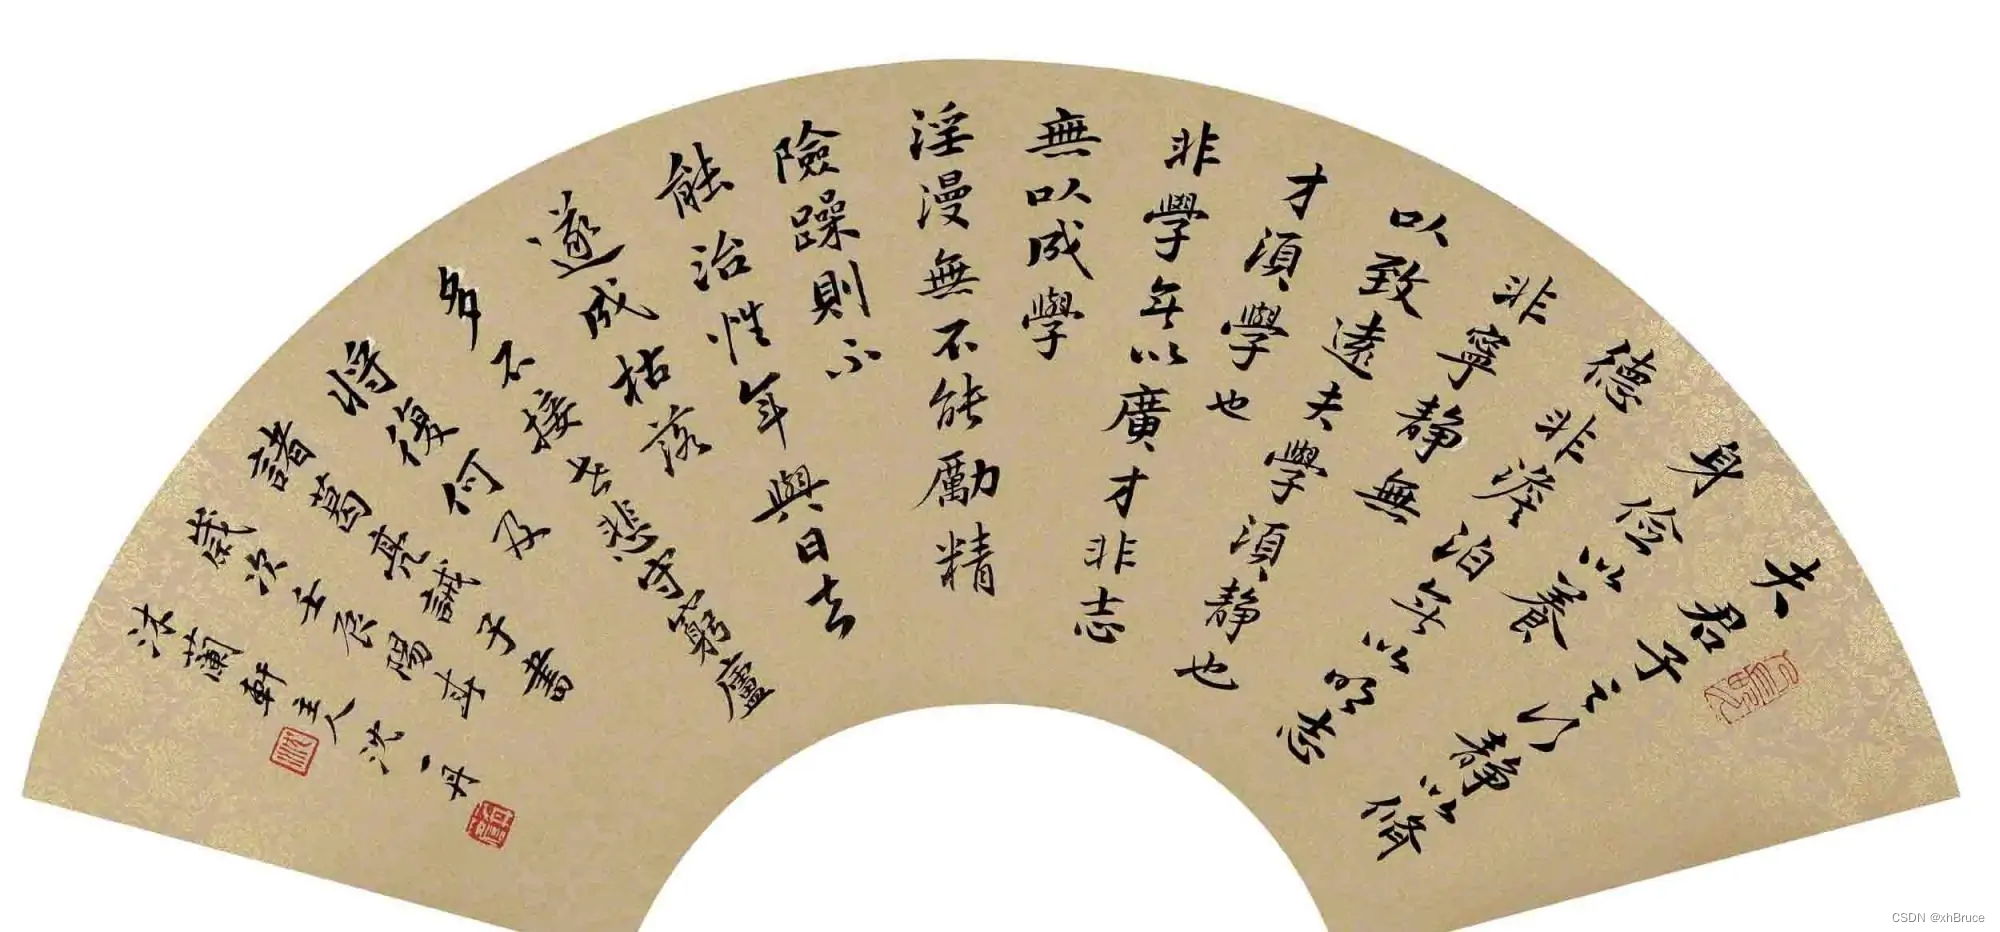 夫君子之行静以脩
身俭以養
德非澹泊无以明志
非寧静無
以致遠夫學須静也
才須學也
非學无以廣才非志
無以成學
淫漫無不能勵精
險躁則不
能治性年與日去
遂成枯落
多不接世悲守窮廬
將復何及
諸葛亮誡子書
歲次壬辰陽
沐蘭軒主人沈一丹
CSDN @xhBruce